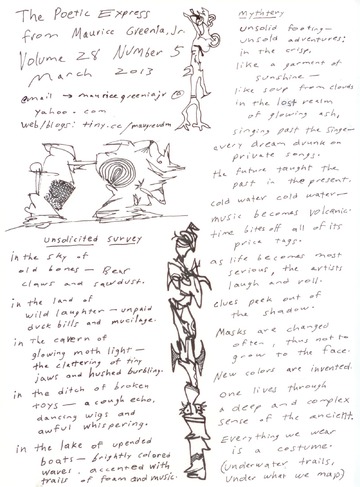 The Poetic Express
from Maurice Greenia, Jr.
Volume 28 Number 5
March 2013
@mail → mauricegreeniajr @
yahoo.com
web/blogs: tiny.cc/maugreudm
unsolicited survey
in the sky of
old bones — Bear
claws and sawdust.
in the land of
wild laughter — unpaid
duck bills and mucilage.
in the cavern of
glowing moth light —
the clattering of tiny
jaws and hushed burbling.
in the ditch of broken
toys — a cough echo,
dancing wigs and
awful whispering.
in the lake of upended
boats — brightly colored
waves. accented with
trails of foam and music.
mythtery
unsolid footing —
unsold adventures:
in the crisp,
like a garment of
sunshine —
like soup from clouds
in the lost realm
of glowing ash,
singing past the singer —
every dream drunk on
private songs.
the future taught the
past in the present.
cold water cold water —
music becomes volcanic.
time bites off all of its
price tags.
as life becomes most
serious, the artists
laugh and roll.
clues peek out of
the shadow.
Masks are changed
often, thus not to
grow to the face.
New colors are invented.
one lives through
a deep and complex
sense of the ancient.
Everything we wear
is a costume.
(underwater trails,
under what we map)